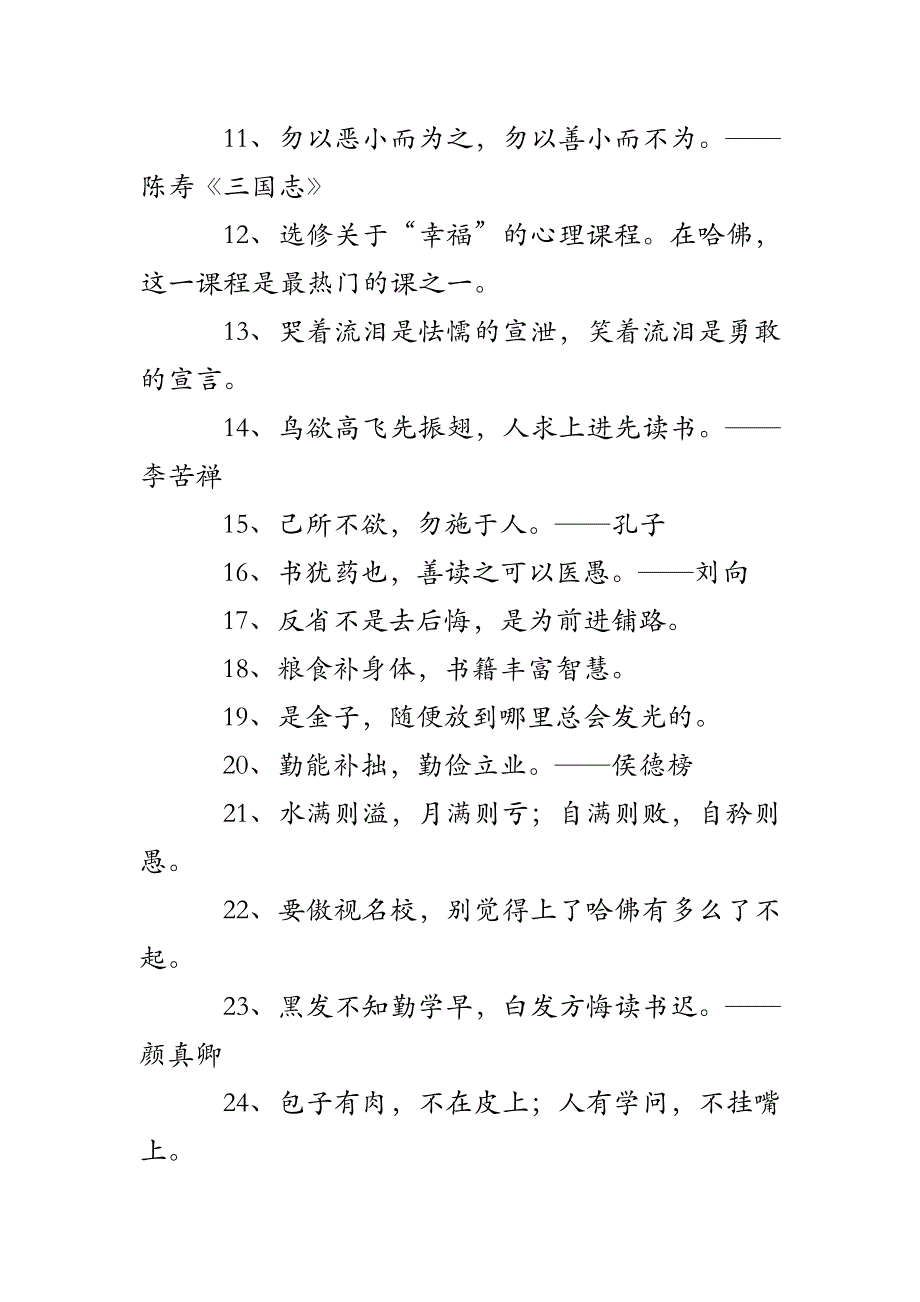 11、勿以恶小而为之，勿以善小而不为。——
陈寿《三国志》
12、选修关于“幸福”的心理课程。在哈佛，
这一课程是最热门的课之一。
13、哭着流泪是怯懦的宣泄，笑着流泪是勇敢
的宣言。
14、鸟欲高飞先振翅，人求上进先读书。——
李苦禅
15、己所不欲，勿施于人。——孔子
16、书犹药也，善读之可以医愚。——刘向
17、反省不是去后悔，是为前进铺路。
18、粮食补身体，书籍丰富智慧。
19、是金子，随便放到哪里总会发光的。
20、勤能补拙，勤俭立业。——侯德榜
21、水满则溢，月满则亏；自满则败，自矜则
愚。
22、要傲视名校，别觉得上了哈佛有多么了不
起。
23、黑发不知勤学早，白发方悔读书迟。——
颜真卿
24、包子有肉，不在皮上；人有学问，不挂嘴
上。